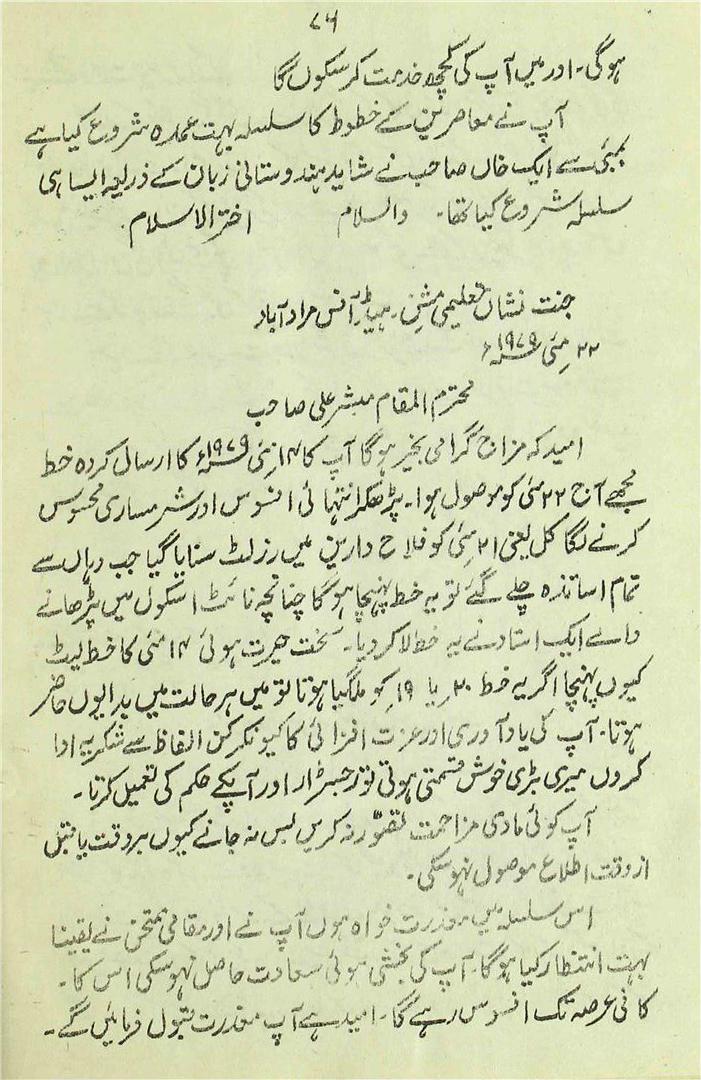 ۷۶
ہوگی۔ اور میں آپ کی کچھ خدمت کر سکوں گا
آپ نے معاصرین کے خطوط کا سلسلہ بہت عمدہ شروع کیا ہے
بمبئی سے ایک خاں صاحب نے شاید ہندوستانی زبان کے ذریعہ ایسا ہی
سلسلہ شروع کیا تھا۔ والسلام اختر الاسلام
جنت نشاں تعلیمی مشن۔ ہیڈ آفس مراد آباد
۲۲ مئی ۱۹۷۹ء
محترم المقام مبشر علی صاحب
امید کہ مزاج گرامی بخیر ہوگا آپ کا ۱۴ مئی ۱۹۷۹ء کا ارسال کردہ خط
مجھے آج ۲۲ مئی کو موصول ہوا۔ پڑھکر انتہائی افسوس اور شرمساری محسوس
کرنے لگا کل یعنی ۲۱ مئی کو فلاح دارین میں رزلٹ سنایا گیا جب وہاں سے
تمام اساتذہ چلے گئے تو یہ خط پہنچا ہوگا چنانچہ نائٹ اسکول میں پڑھانے
والے ایک استاد نے یہ خط لا کر دیا۔ سخت حیرت ہوئی ۱۴ مئی کا خط لیٹ
کیوں پہنچا اگر یہ خط ۲۰ یا ۱۹ کو ملگیا ہوتا تو میں ہر حالت میں بدایوں حاضر
ہوتا۔ آپ کی یاد آوری اور عزت افزائی کا کیونکر کن الفاظ سے شکریہ ادا
کروں میری بڑی خوش قسمتی ہوتی تو رجسٹرار اور آپکے حکم کی تعمیل کرتا۔
آپ کوئی مادی مزاحمت تصوّر نہ کریں بس نہ جانے کیوں بروقت یا قبل
از وقت اطلاع موصول نہوسکی۔
اس سلسلہ میں معذرت خواہ ہوں آپ نے اور مقامی ممتحن نے یقیناً
بہت انتظار کیا ہوگا۔ آپ کی بخشی ہوئی سعادت حاصل نہوسکی اس کا۔
کافی عرصہ تک افسوس رہے گا۔ امید ہے آپ معذرت قبول فرمائیں گے۔